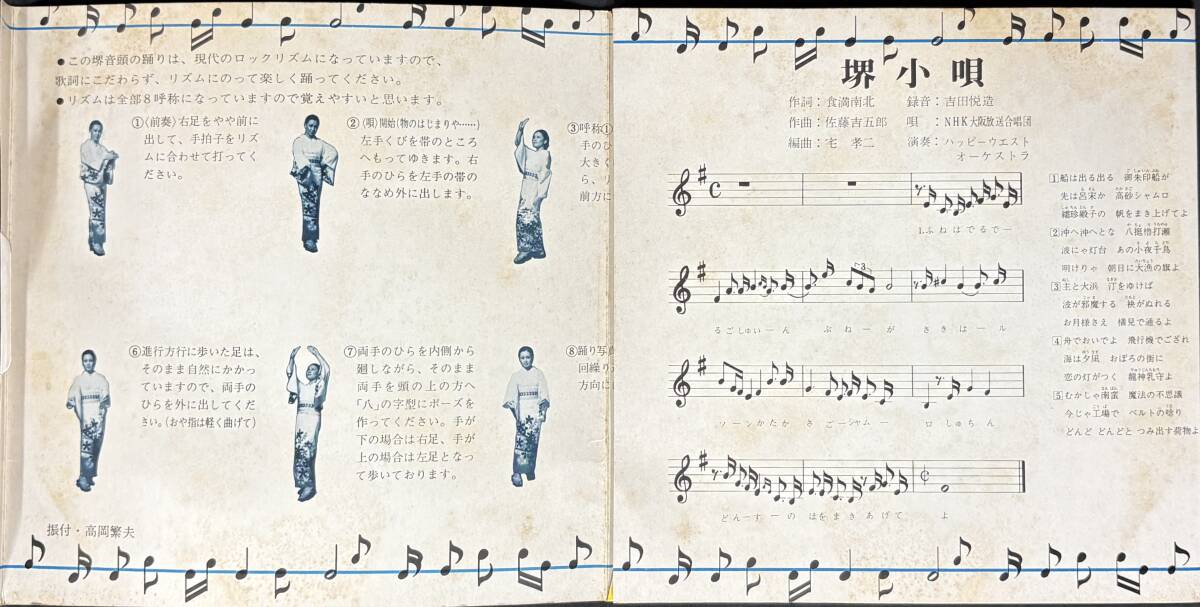 ●この堺音頭の踊りは、現代のロックリズムになっていますので、
歌詞にこだわらず、リズムにのって楽しく踊ってください。
●リズムは全部8呼称になっていますので覚えやすいと思います。
①(前奏)右足をやや前に
出して、手拍子をリズ
ムに合わせて打ってく
ださい。
②(唄)開始(物のはじまりや……)
左手くびを帯のところ
へもってゆきます。右
手のひらを左手の帯の
ななめ外に出します。
③呼称①
手のひ
大きく
ら、リ
前方に
⑥進行方行に歩いた足は、
そのまま自然にかかっ
ていますので、両手の
ひらを外に出してくだ
さい。(おや指は軽く曲げて)
⑦両手のひらを内側から
廻しながら、そのまま
両手を頭の上の方へ
「八」の字型にポーズを
作ってください。手が
下の場合は右足、手が
上の場合は左足となっ
て歩いております。
⑧踊り写真
回繰り
方向に
振付・高岡繁夫
堺小唄
作詞：食満南北 録音：吉田悦造
作曲：佐藤吉五郎 唄：NHK大阪放送合唱団
編曲：宅 孝二 演奏：ハッピーウエスト
オーケストラ
1.ふねはでるでー
るごしゅいーん ぶねーが さきはール
ソーンかたか さごーシャムー ロ しゅちん
どんーすーの ほをまきあげて よ
1 船は出る出る 御朱印船が
先は呂宋か 高砂シャムロ
繻珍殿子の 帆をまき上げてよ
2 沖へ沖へとな 八挺櫓打瀬
波にゃ灯台 あの小夜千鳥
明けりゃ 朝日に大漁の旗よ
3 主と大浜 汀をゆけば
波が邪魔する 袂がぬれる
お月様さえ 横見で通るよ
4 舟でおいでよ 飛行機でござれ
海は夕凪 おぼろの街に
恋の灯がつく 龍神乳守よ
5 むかしゃ南蛮 魔法の不思議
今じゃ工場で ベルトの唸り
どんど どんどと つみ出す荷物よ